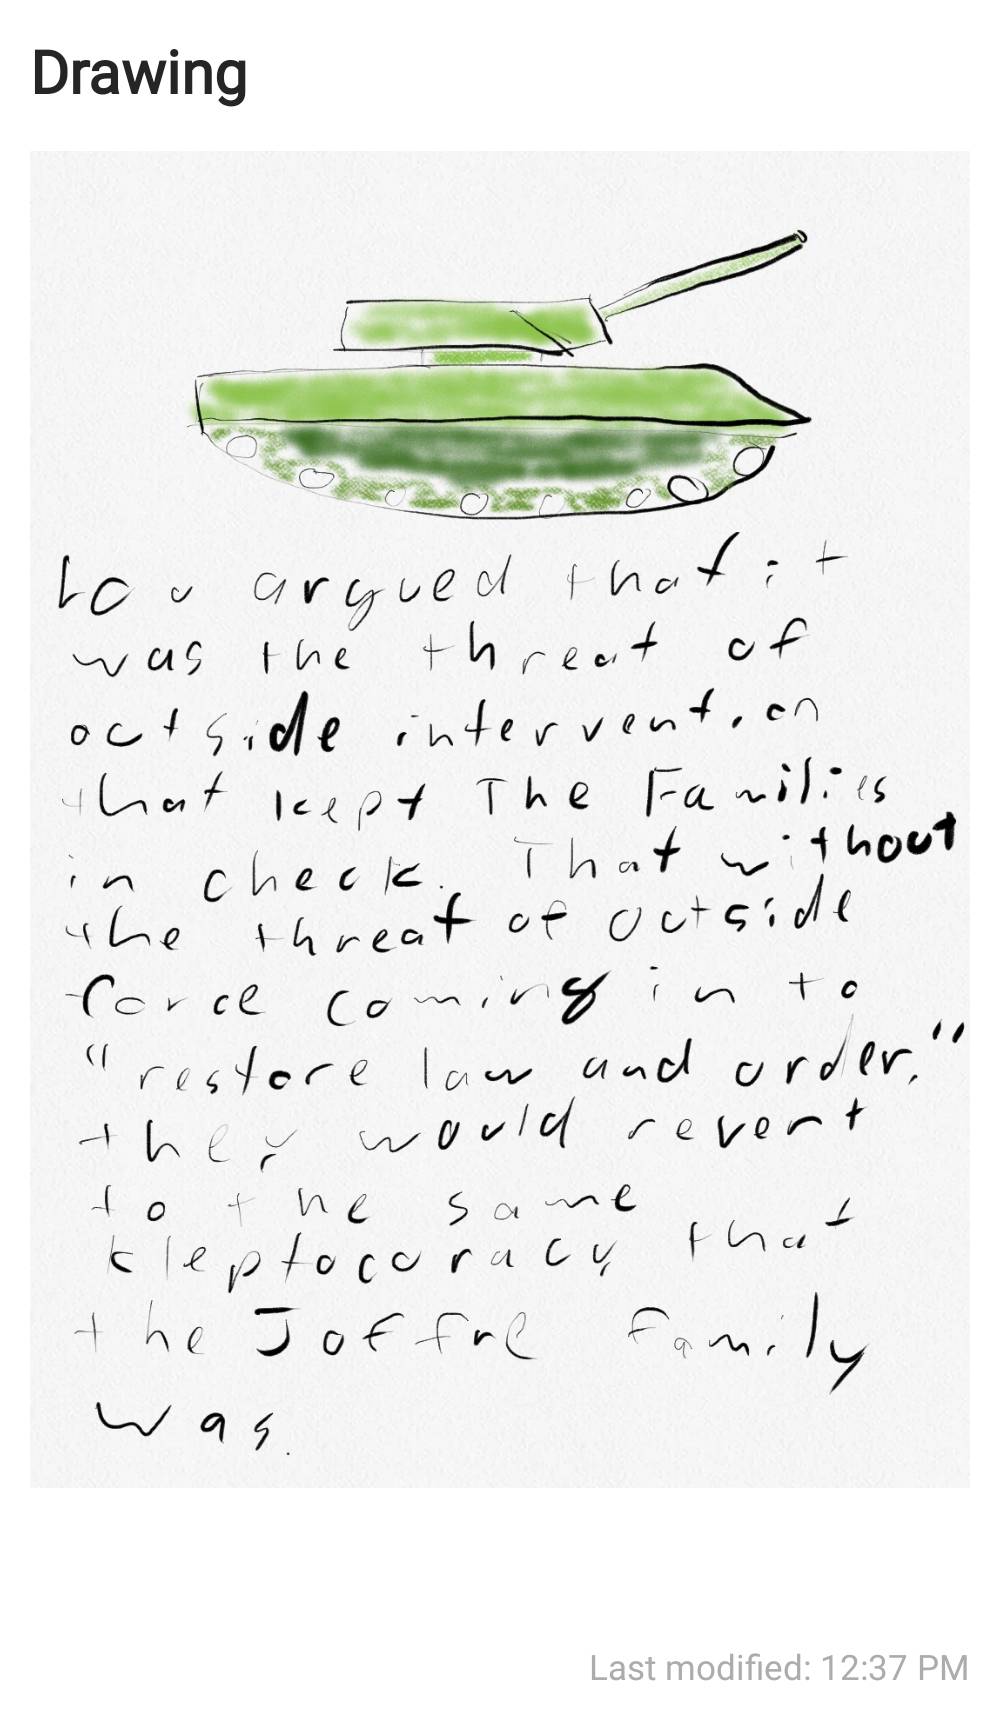 Drawing
Lou argued that it
was the threat of
outside intervention
that kept The Families
in check. That without
the threat of outside
force coming in to
"restore law and order,"
they would revert
to the same
kleptocracy that
the Joffre family
was.
Last modified: 12:37 PM